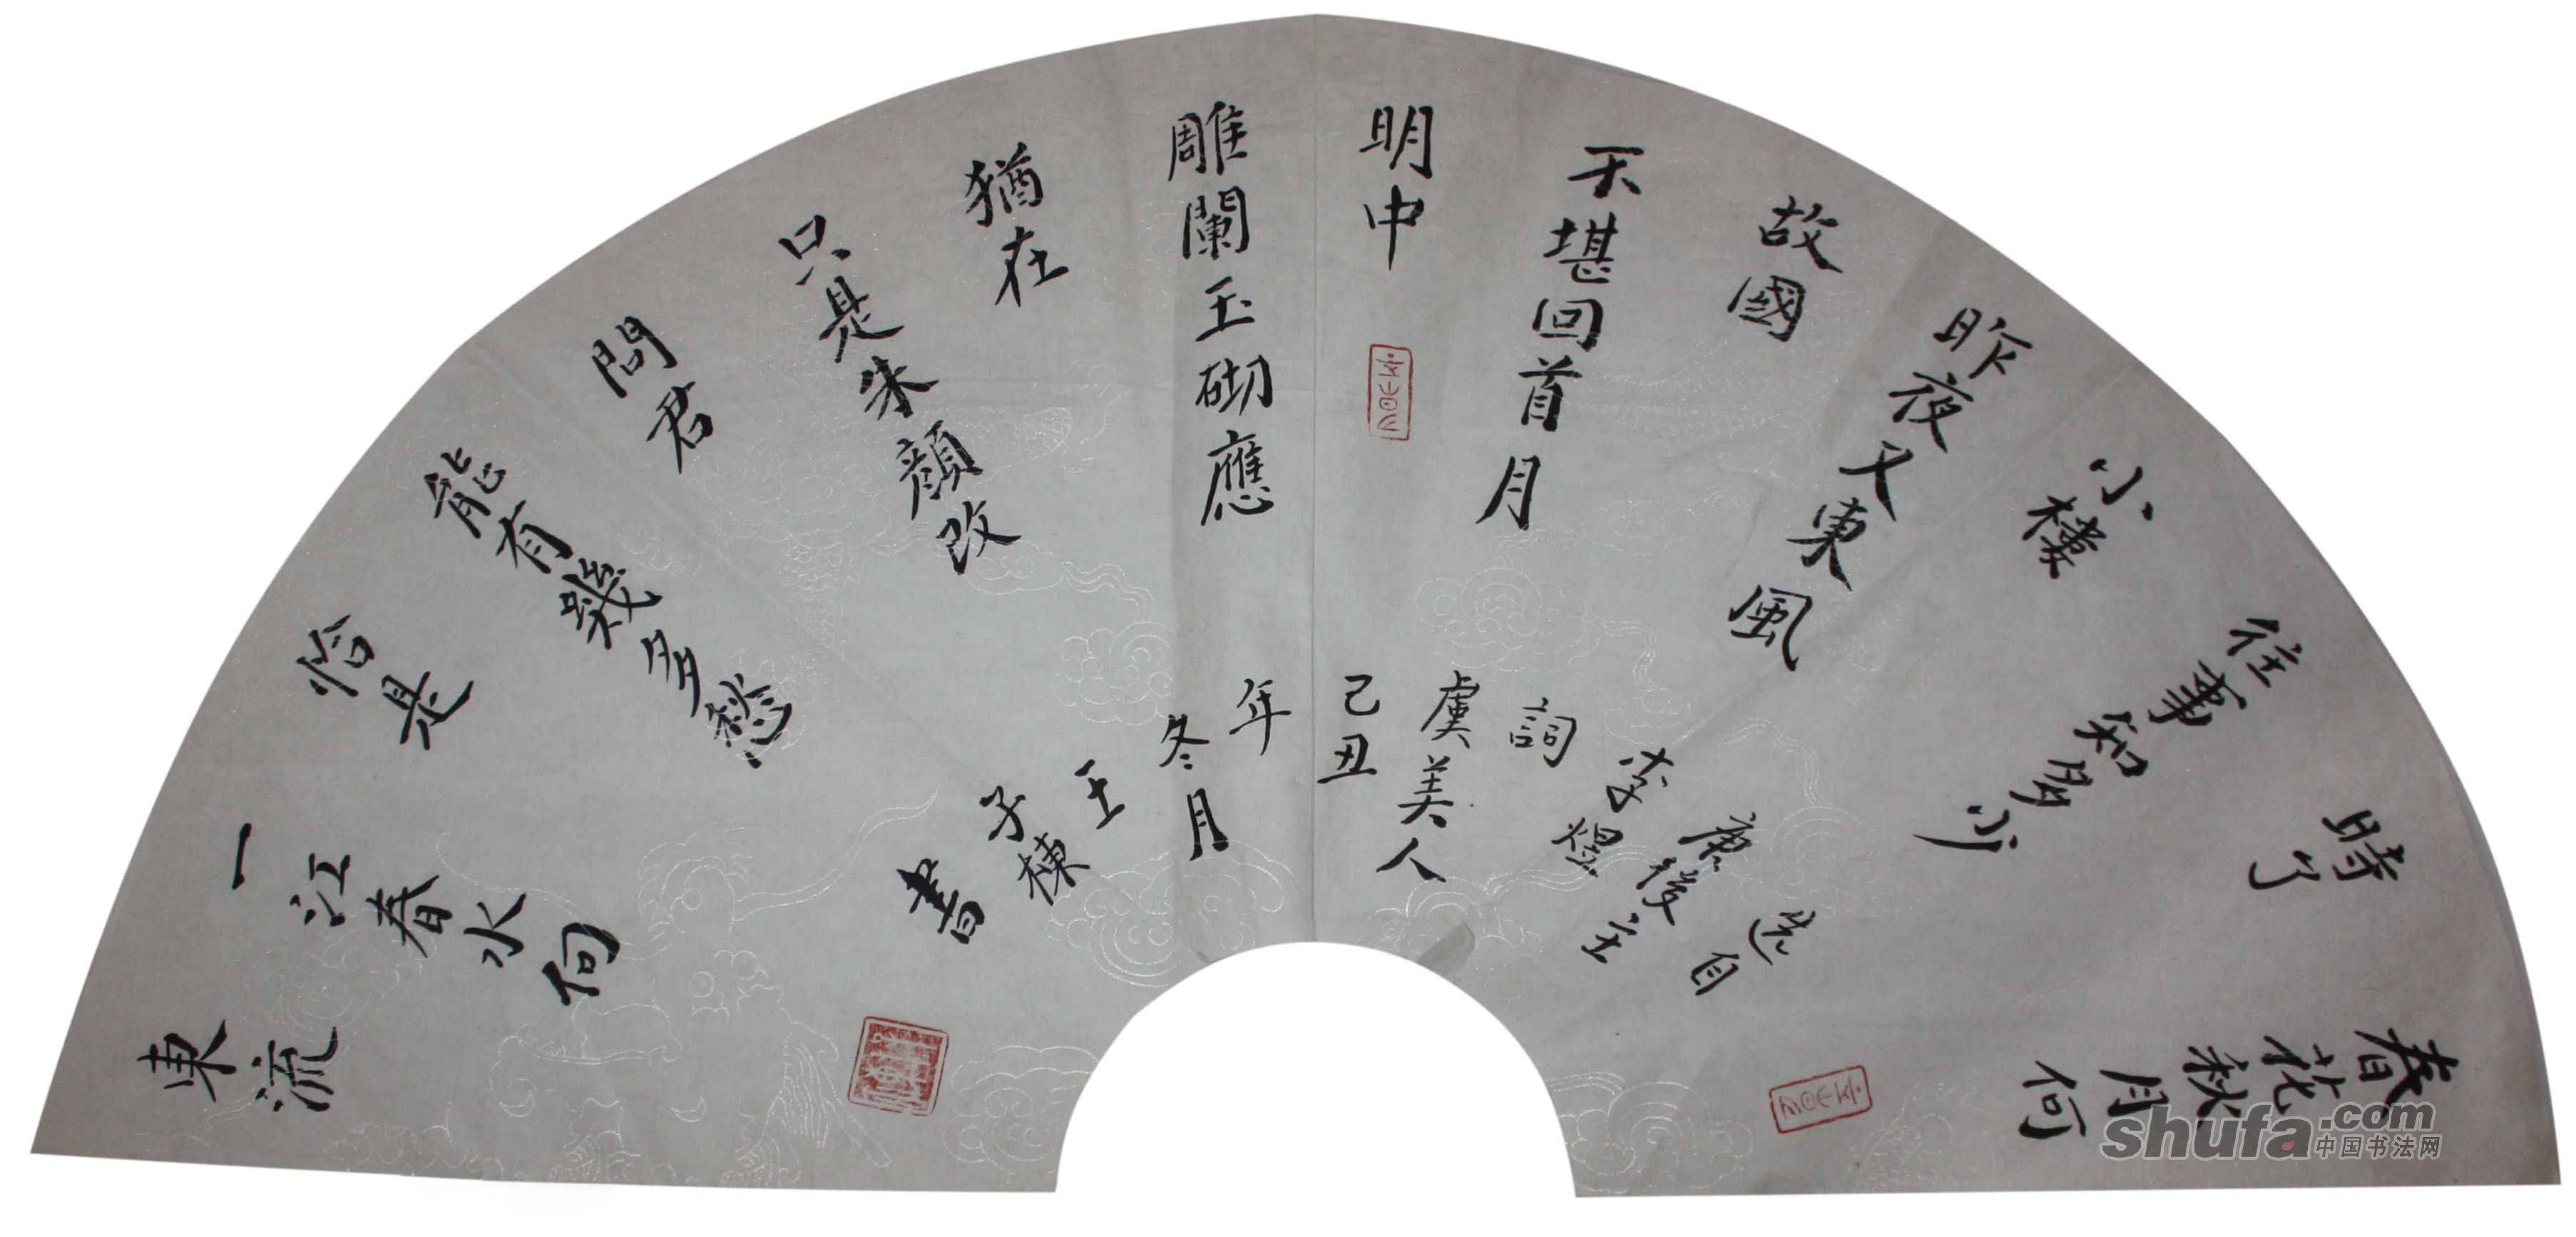 春花秋月何
時了
往事知多少
小樓
昨夜又東風
故國
不堪回首月
明中
雕闌玉砌應
猶在
只是朱顏改
問君
能有幾多愁
恰是
一江春水向
東流
选自
唐後主
李煜
詞
虞美人
己丑
年
冬月
王
子棟
書
shufa.com
中国书法网